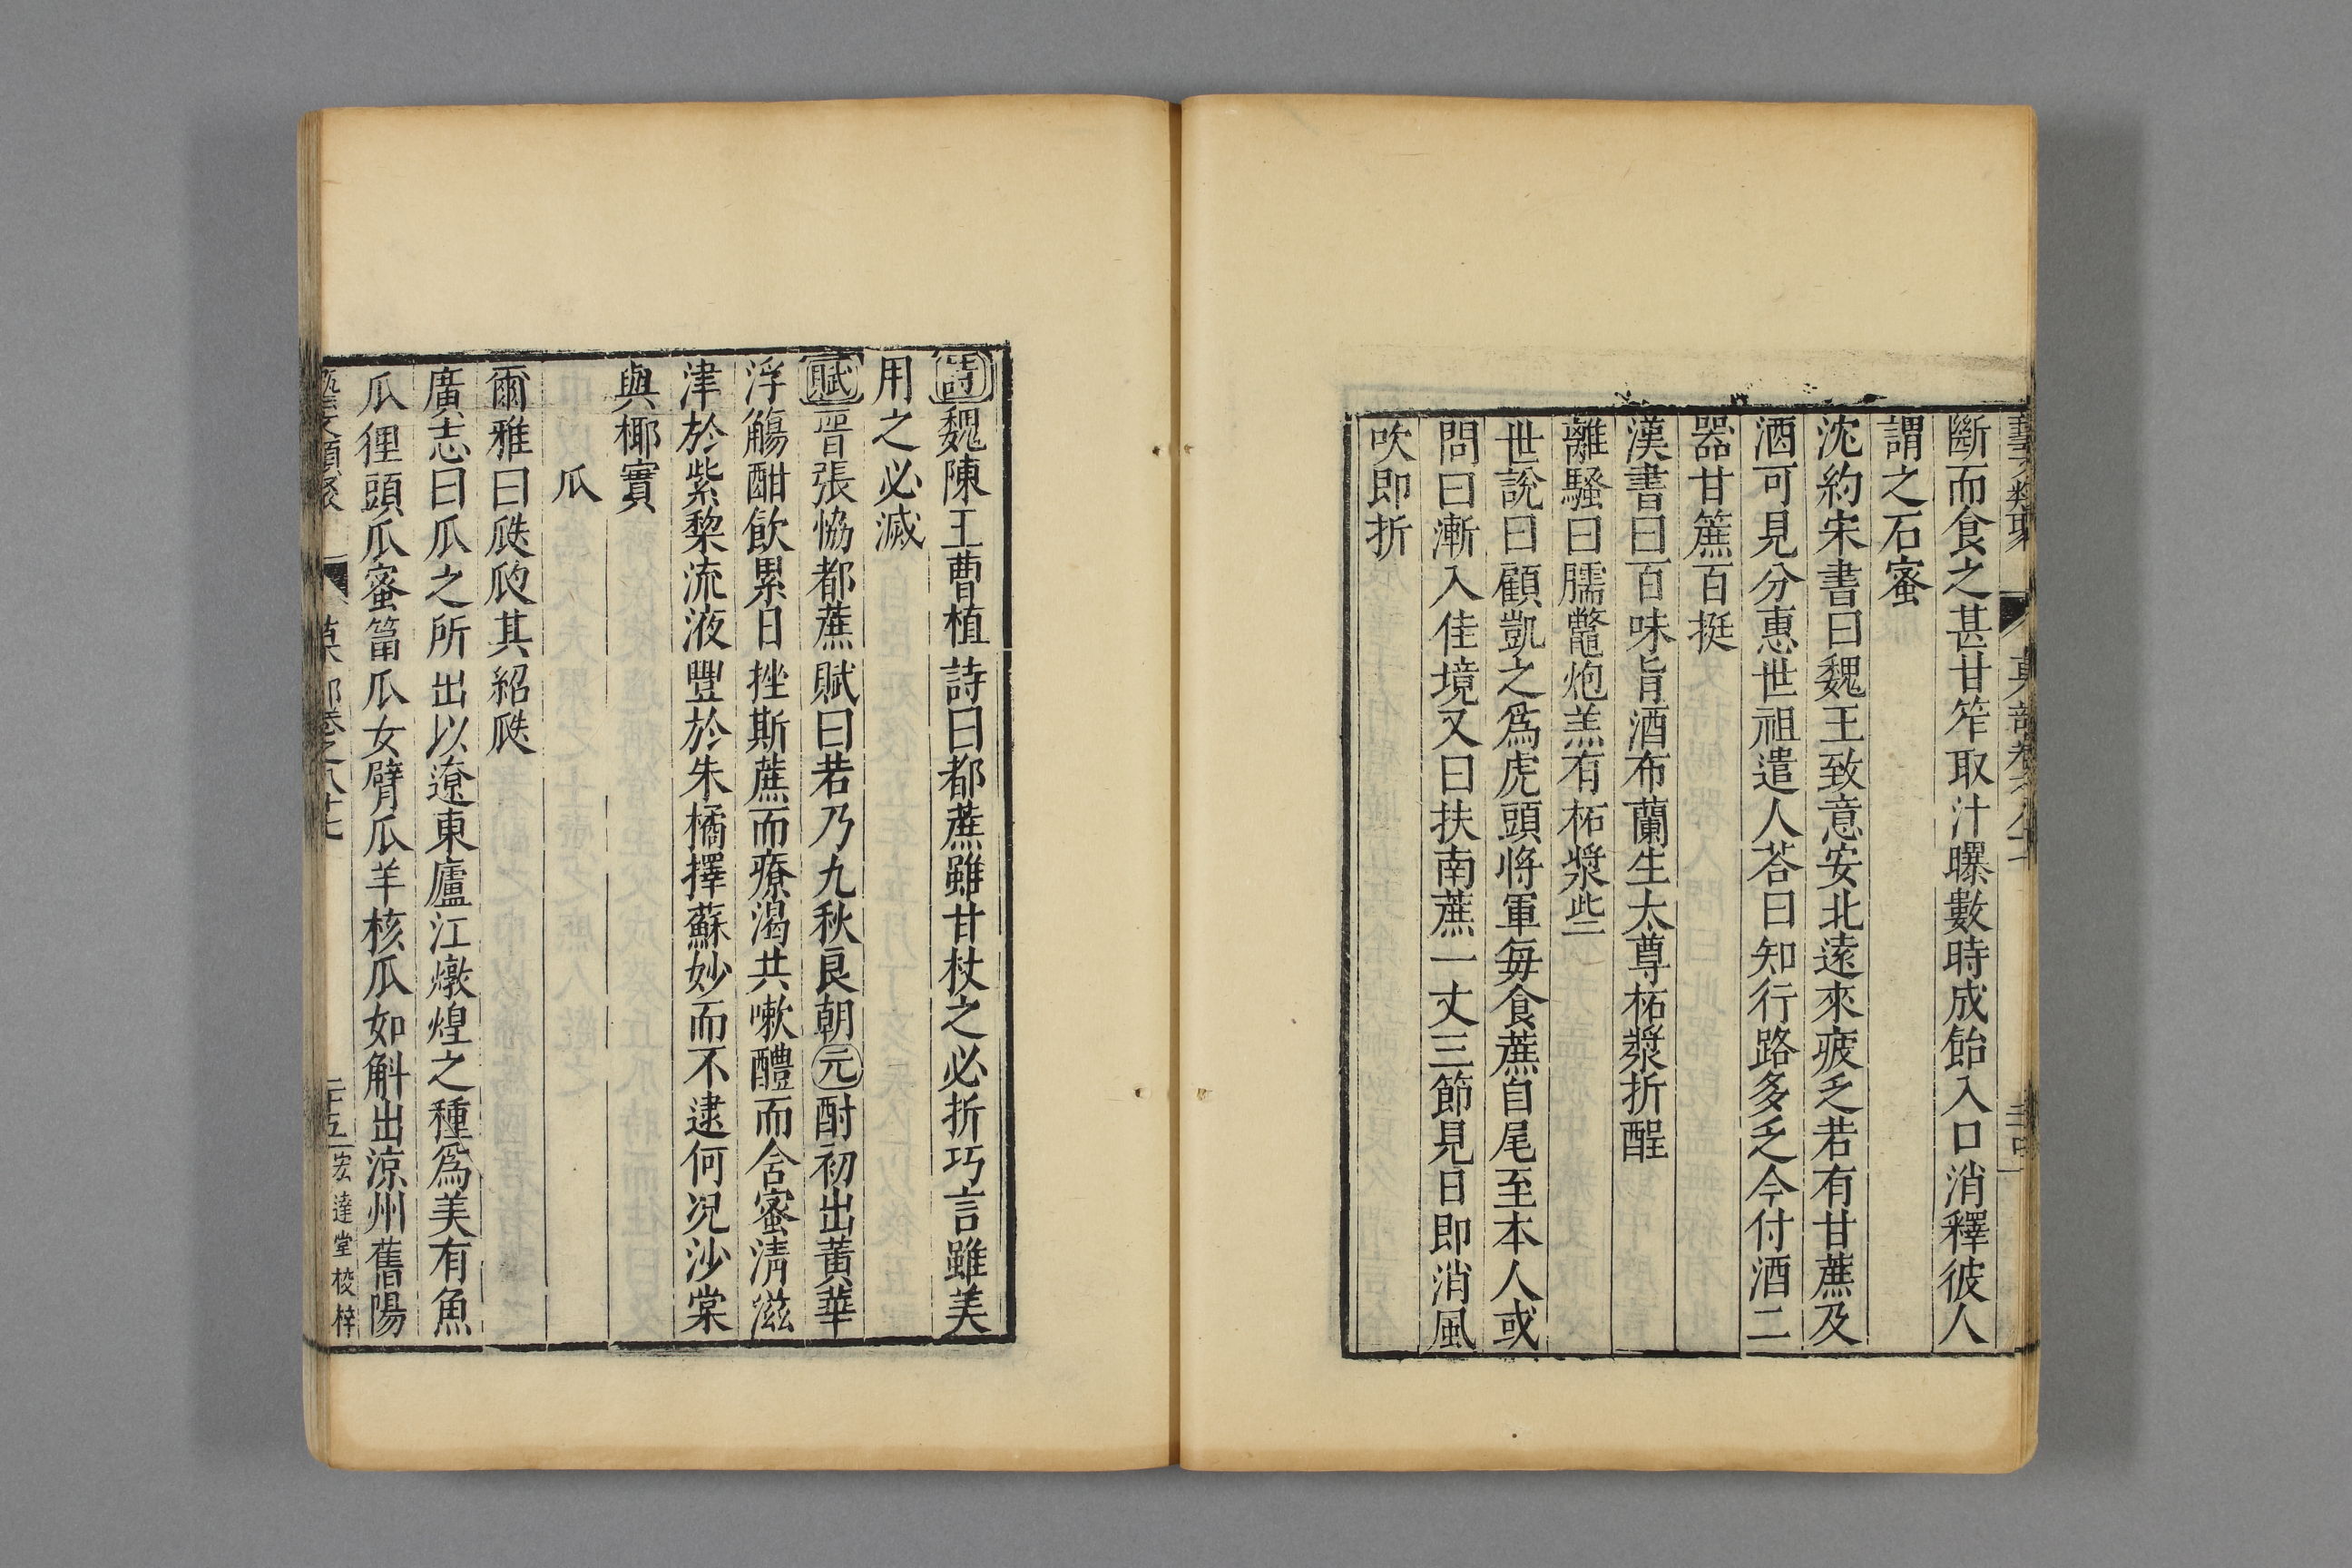 斷而食之甚甘笮取汁曝數時成飴入口消釋彼人
謂之石蜜
沈約宋書曰魏王致意安北遠來疲乏若有甘蔗及
酒可見分惠世祖遣人荅曰知行路多乏今付酒二
器甘簾百挺
漢書曰百味旨酒布蘭生太尊柘漿折酲
離騷曰臑鼈炮羔有柘漿些
世說曰顧凱之爲虎頭將軍每食蔗自尾至本人或
問曰漸入佳境又曰扶南蔗一丈三節見日即消風
吹即折
詩魏陳王曹植詩曰都蔗雖甘杖之必折巧言雖美
用之必滅
賦晋張恊都蔗賦曰若乃九秋良朝元酎初出黃華
浮觴酣飲累日挫斯蔗而療渴共嗽醴而含蜜淸滋
津於紫棃流液豐於朱橘擇蘇妙而不逮何况沙棠
與椰實
瓜
爾雅曰瓞瓝其紹瓞
廣志曰瓜之所出以遼東廬江燉煌之種爲美有魚
瓜狸頭瓜蜜筩瓜女臂瓜羊核瓜如斛出凉州舊陽
卷之八十七
二十五
宏達堂校梓